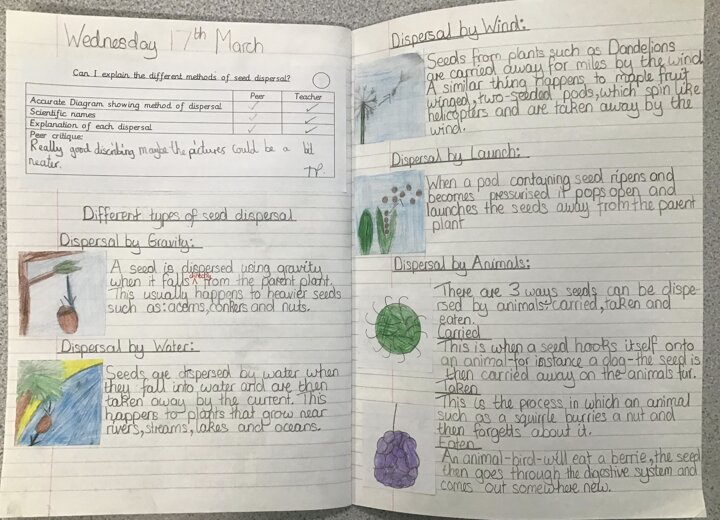 Wednesday 17th March
Can I explain the different methods of seed dispersal?
Peer Teacher
Accurate Diagram showing method of dispersal
Scientific names
Explanation of each dispersal
Peer critique:
Really good discribing maybe the pictures could be a bit
neater.
Different types of seed dispersal
Dispersal by Gravity:
A seed is dispersed using gravity
when it falls directly from the parent plant.
This usually happens to heavier seeds
such as: acorns, conkers and nuts.
Dispersal by Water:
Seeds are dispersed by water when
they fall into water and are then
taken away by the current. This
happens to plants that grow near
rivers, streams, lakes and oceans.
Dispersal by Wind:
Seeds from plants such as Dandelions
are carried away for miles by the wind
A similar thing happens to maple fruit
winged, two-seeded pods, which spin like
helicopters and are taken away by the
wind.
Dispersal by Launch:
When a pod containing seed ripens and
becomes pressurised it pops open and
launches the seeds away from the parent
plant
Dispersal by Animals:
There are 3 ways seeds can be dispe-
rsed by animals-carried, taken and
eaten.
Carried
This is when a seed hooks itself onto
an animal-for instance a dog-the seed is
then carried away on the animals fur.
Taken
This is the process in which an animal
such as a squirrle burries a nut and
then forgetts about it.
Eaten
An animal-bird-will eat a berrie, the seed
then goes through the digestive system and
comes out somewhere new.